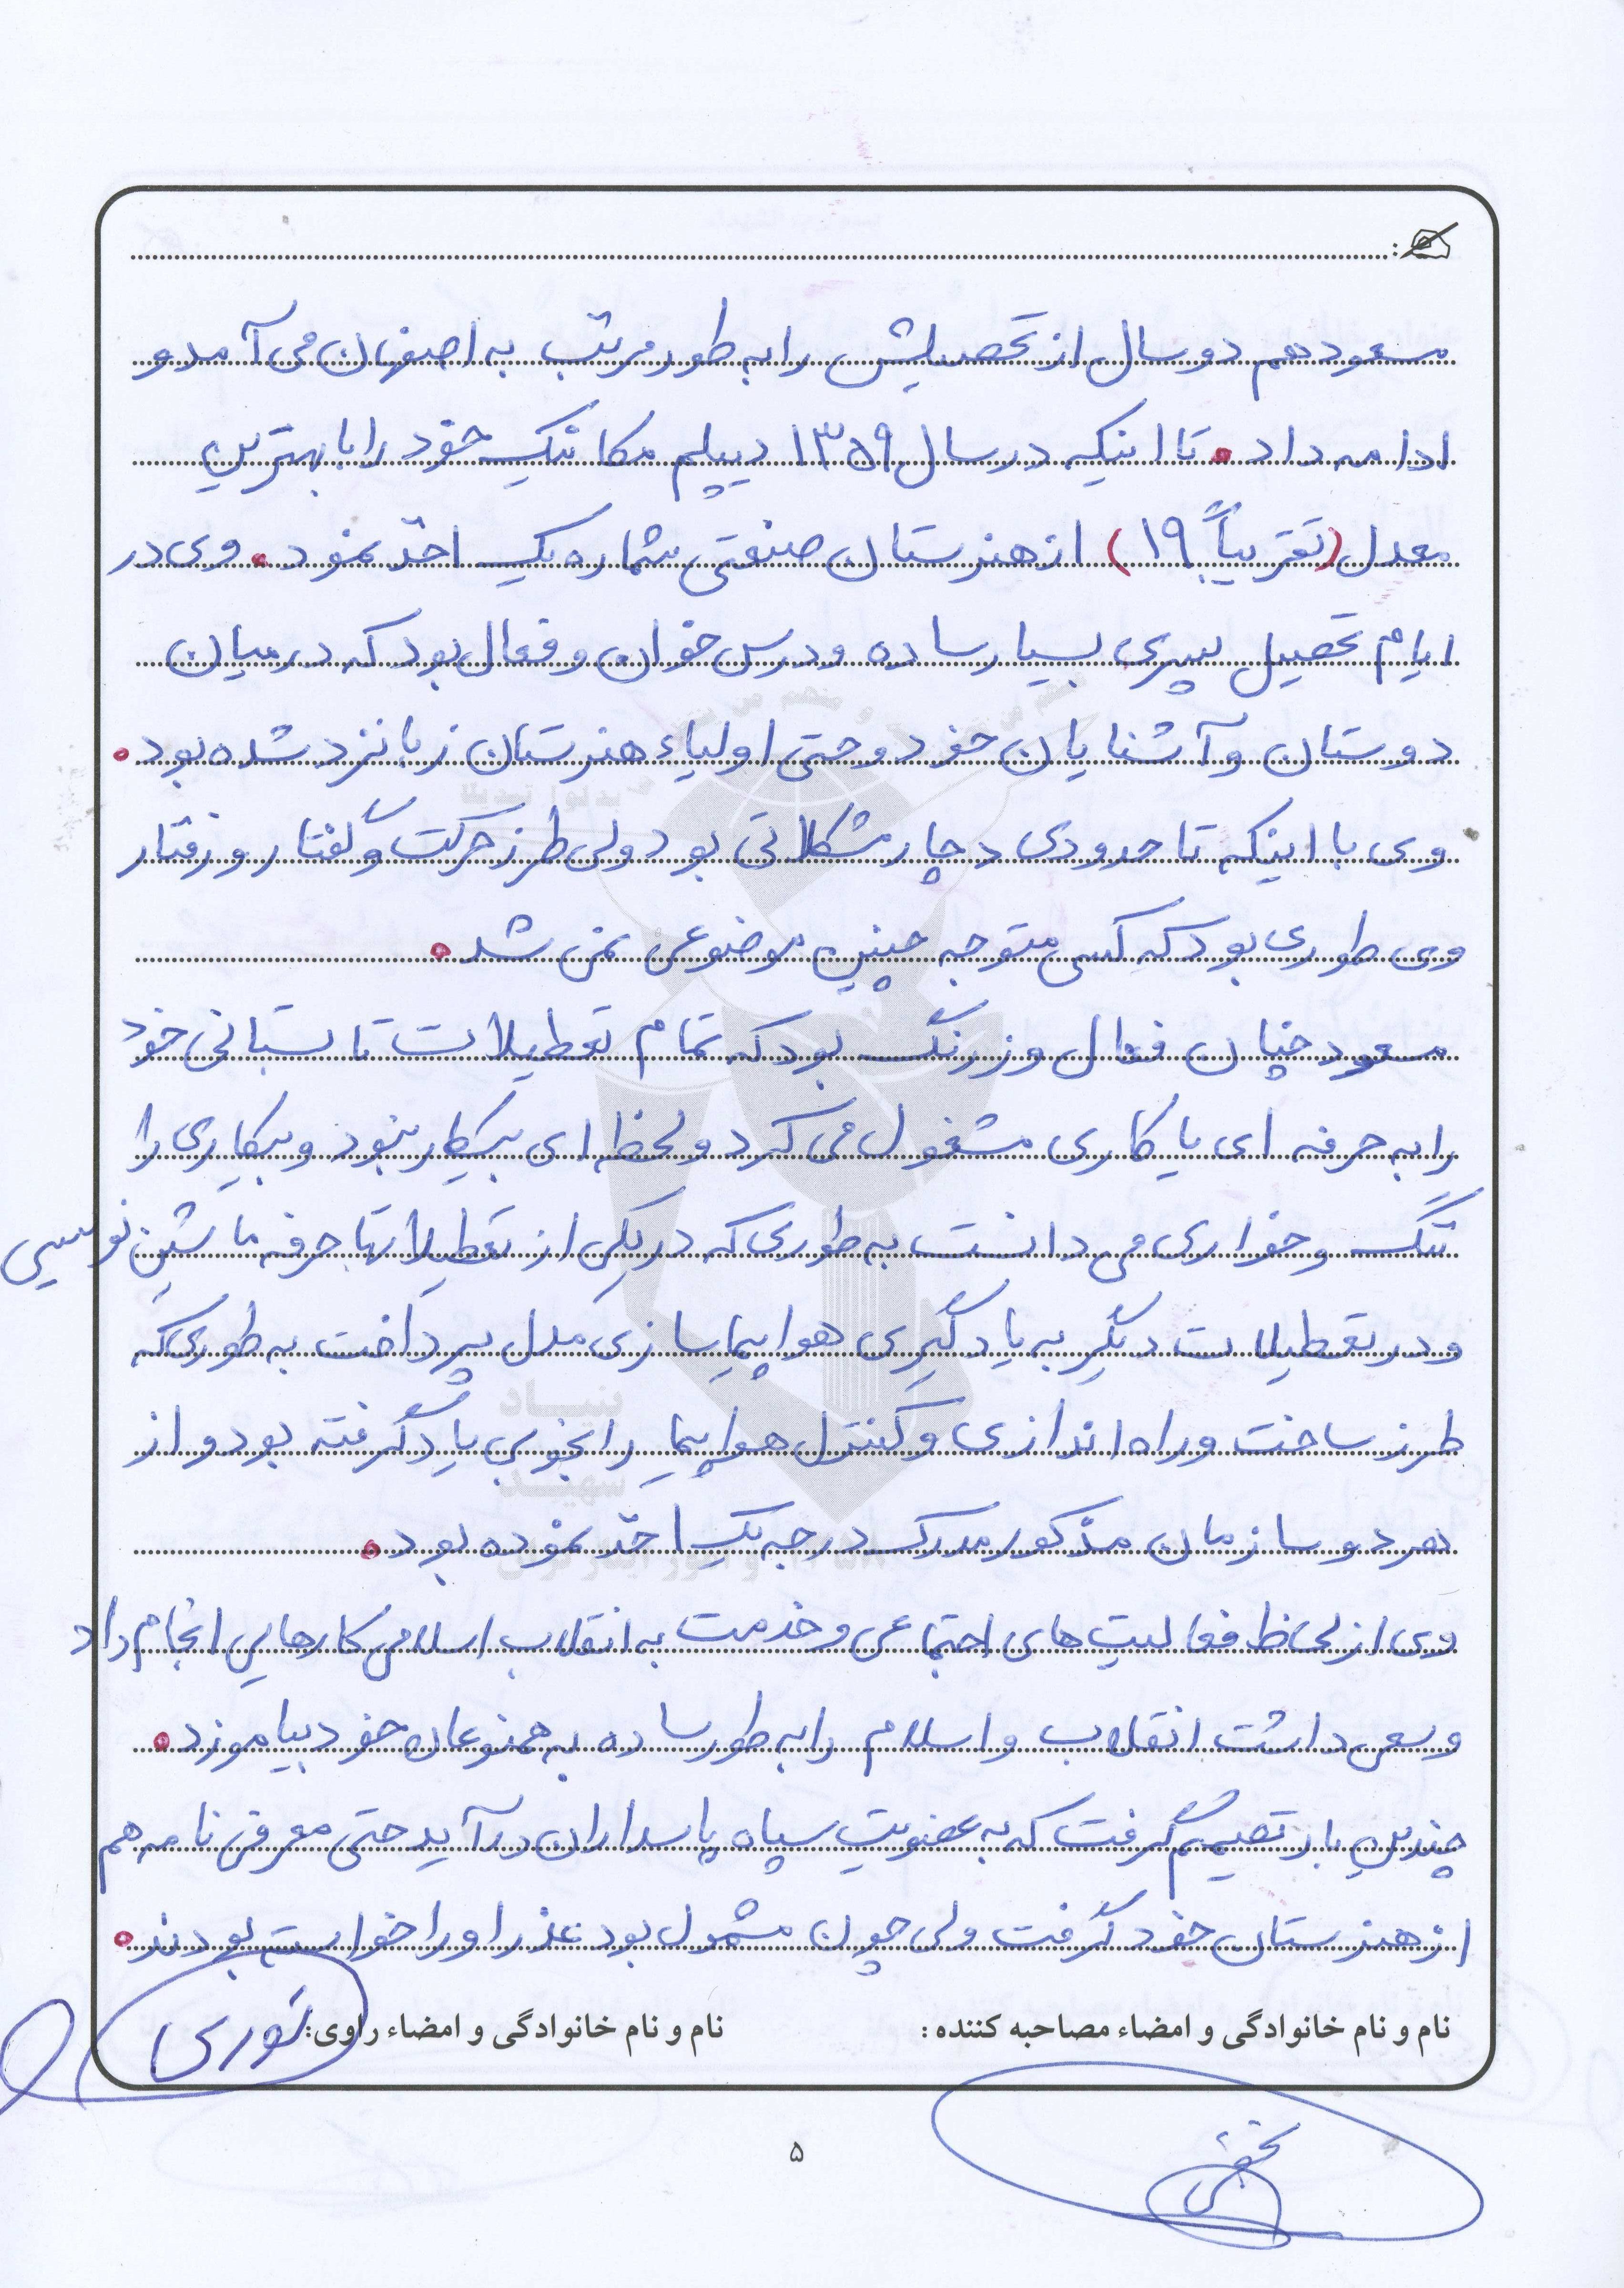 مسعود هم دو سال از تحصیلش را به طور مرتب به اصفهان می آمد و
ادامه داد. تا اینکه در سال ۱۳۵۹ دیپلم مکانیک خود را با بهترین
معدل (تقریباً ۱۹) از هنرستان صنعتی شماره یک اخذ نمود. وی در
ایام تحصیل پسری بسیار ساده و درس خوان و فعال بود که در میان
دوستان و آشنایان خود و حتی اولیاء هنرستان زبانزد شده بود.
وی با اینکه تا حدودی دچار مشکلاتی بود ولی طرز حرکت و گفتار و رفتار
وی طوری بود که کسی متوجه چنین موضوعی نمی شد.
مسعود چنان فعال و زرنگ بود که تمام تعطیلات تابستانی خود
را به حرفه ای یا کاری مشغول می کرد و لحظه ای بیکار نبود و بیکاری را
ننگ و خواری می دانست به طوری که در یکی از تعطیلاتها حرفه ماشین نویسی
و در تعطیلات دیگر به یادگیری هواپیماسازی مدل پرداخت به طوری که
طرز ساخت و راه اندازی و کنترل هواپیما را بخوبی یاد گرفته بود و از
هر دو سازمان مذکور مدرک درجه یک اخذ نموده بود.
وی از لحاظ فعالیت های اجتماعی و خدمت به انقلاب اسلامی کارهایی انجام داد
و سعی داشت انقلاب و اسلام را به طور ساده به همنوعان خود بیاموزد.
چندین بار تصیمم گرفت که به عضویت سپاه پاسداران درآید حتی معرفی نامه هم
از هنرستان خود گرفت ولی چون مشمول بود عذر او را خواسته بودند.
نام و نام خانوادگی و امضاء مصاحبه کننده :
نام و نام خانوادگی و امضاء راوی:
نوری
۵
بنیاد
شهید